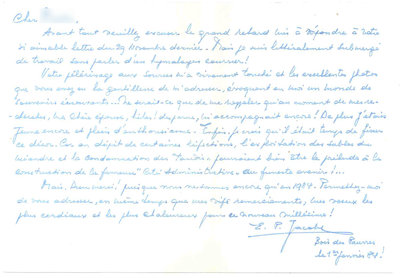 Cher
Avant tout veuillez excuser le grand retard mis à répondre à votre
si aimable lettre du 29 Novembre dernier. Mais je suis littéralement submergé
de travail sans parler d'un hymalayen courrier!
Votre pèlerinage aux sources m'a vivement touché et les excellentes photos
que vous avez eu la gentillesse de m'adresser, évoquent en moi un monde de
souvenirs émouvants. Ne serait-ce que de me rappeler qu'au moment de mes re-
cherches, ma chère épouse, hélas! disparue, m'accompagnait encore! De plus j'étais
jeune encore et plein d'enthousiasme. Enfin je crois qu'il était temps de fixer
ce décor. Car en dépit de certaines
méandre et la condamnation des pourraient bien être le prélude à la
construction de la fameuse "Cité Administrative" du funeste avenir!...
Mais, puisque nous ne sommes encore qu'en 1984. Permettez-moi
de vous adresser, en même temps que mes vifs remerciements, mes voeux les
plus cordiaux et les plus chaleureux pour ce nouveau millésime!
E. P. Jacobs
Bois des Pauvres
le 1 janvier 84!